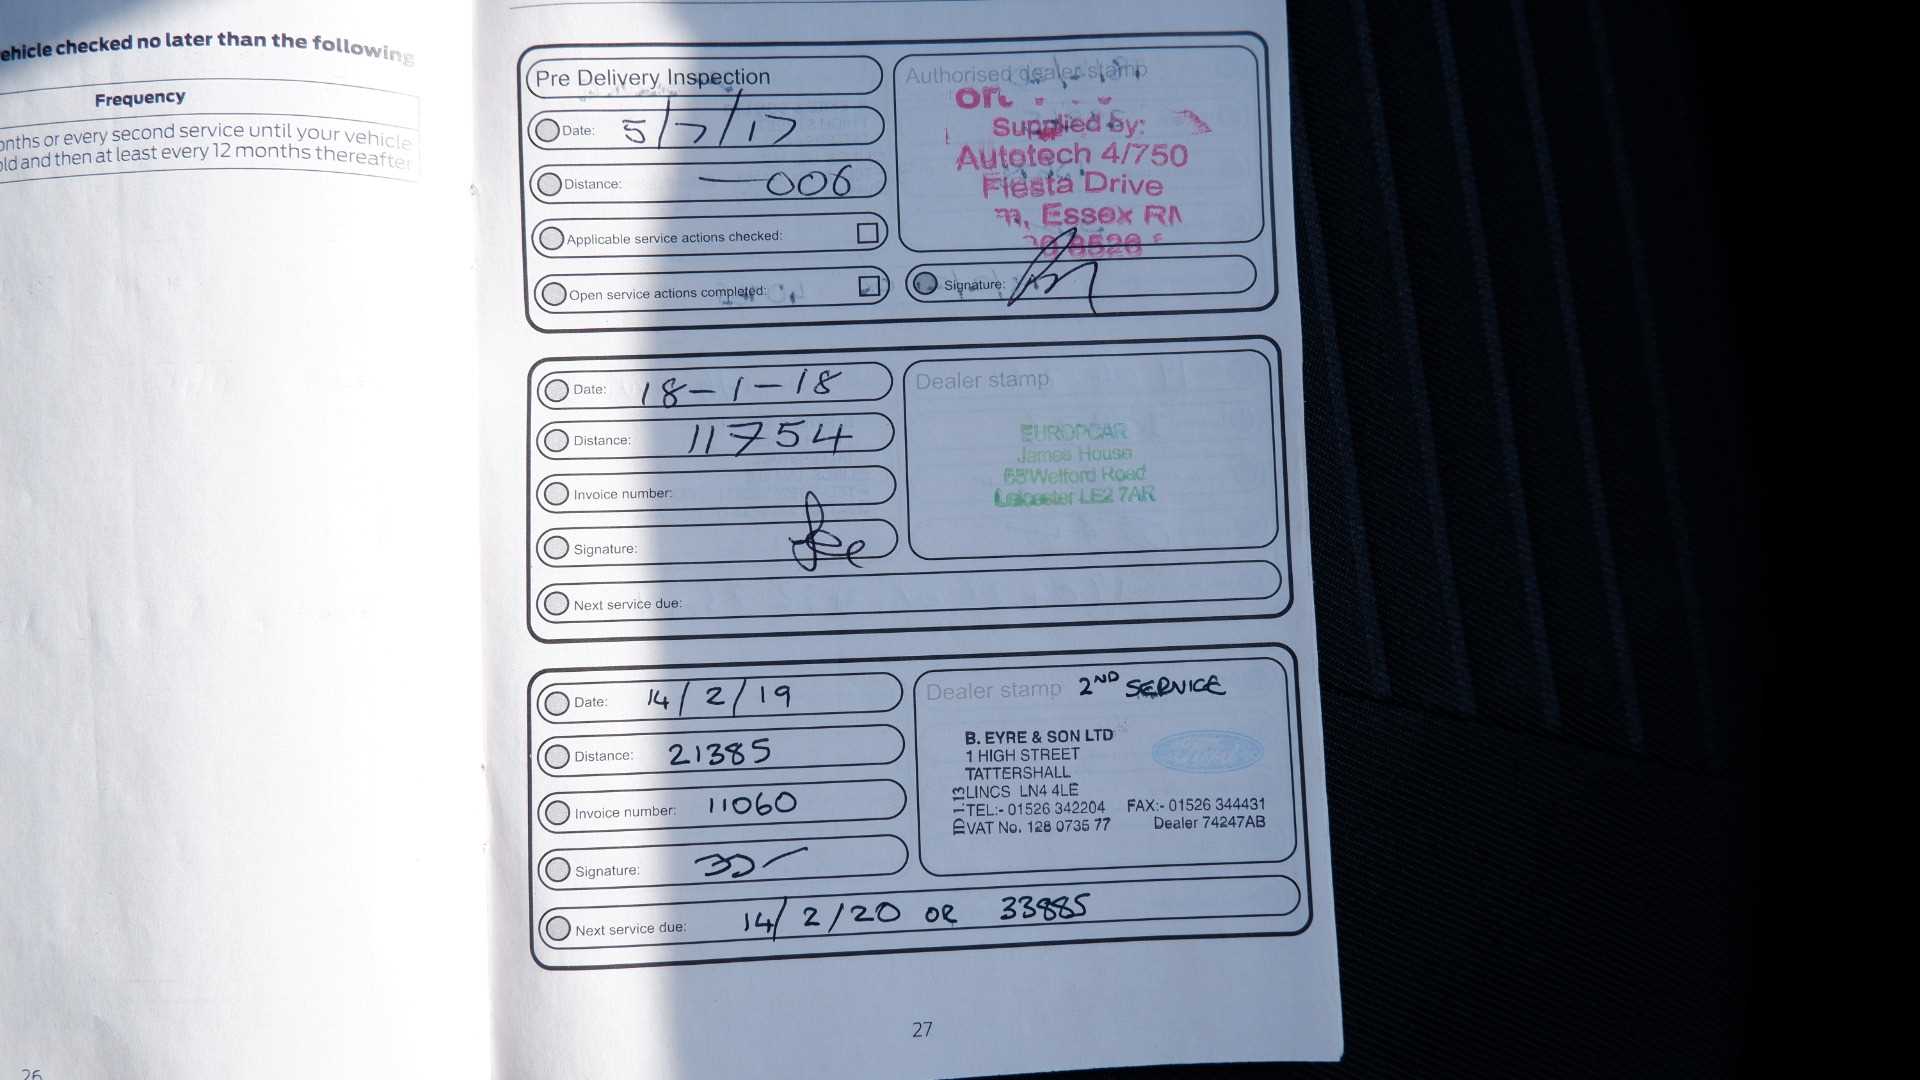 ehicle checked no later than the following
Frequency
onths or every second service until your vehicle
old and then at least every 12 months thereafter
26
Pre Delivery Inspection
Date: 5/7/17
Distance: —006
Applicable service actions checked:
Open service actions completed:
Authorised dealer stamp
Supplied by:
Autotech 4/750
Fiesta Drive
Essex RM
Signature:
Date: 18-1-18
Distance: 11754
Invoice number:
Signature:
Next service due:
Dealer stamp
EUROPCAR
James House
Welford Road
Leicester LE2 7AR
Date: 14/2/19
Distance: 21385
Invoice number: 11060
Signature:
Next service due: 14/2/20 OR 33885
Dealer stamp 2ND SERVICE
B. EYRE & SON LTD
1 HIGH STREET
TATTERSHALL
LINCS LN4 4LE
TEL:- 01526 342204 FAX:- 01526 344431
VAT No. 128 0735 77 Dealer 74247AB
Ford
27